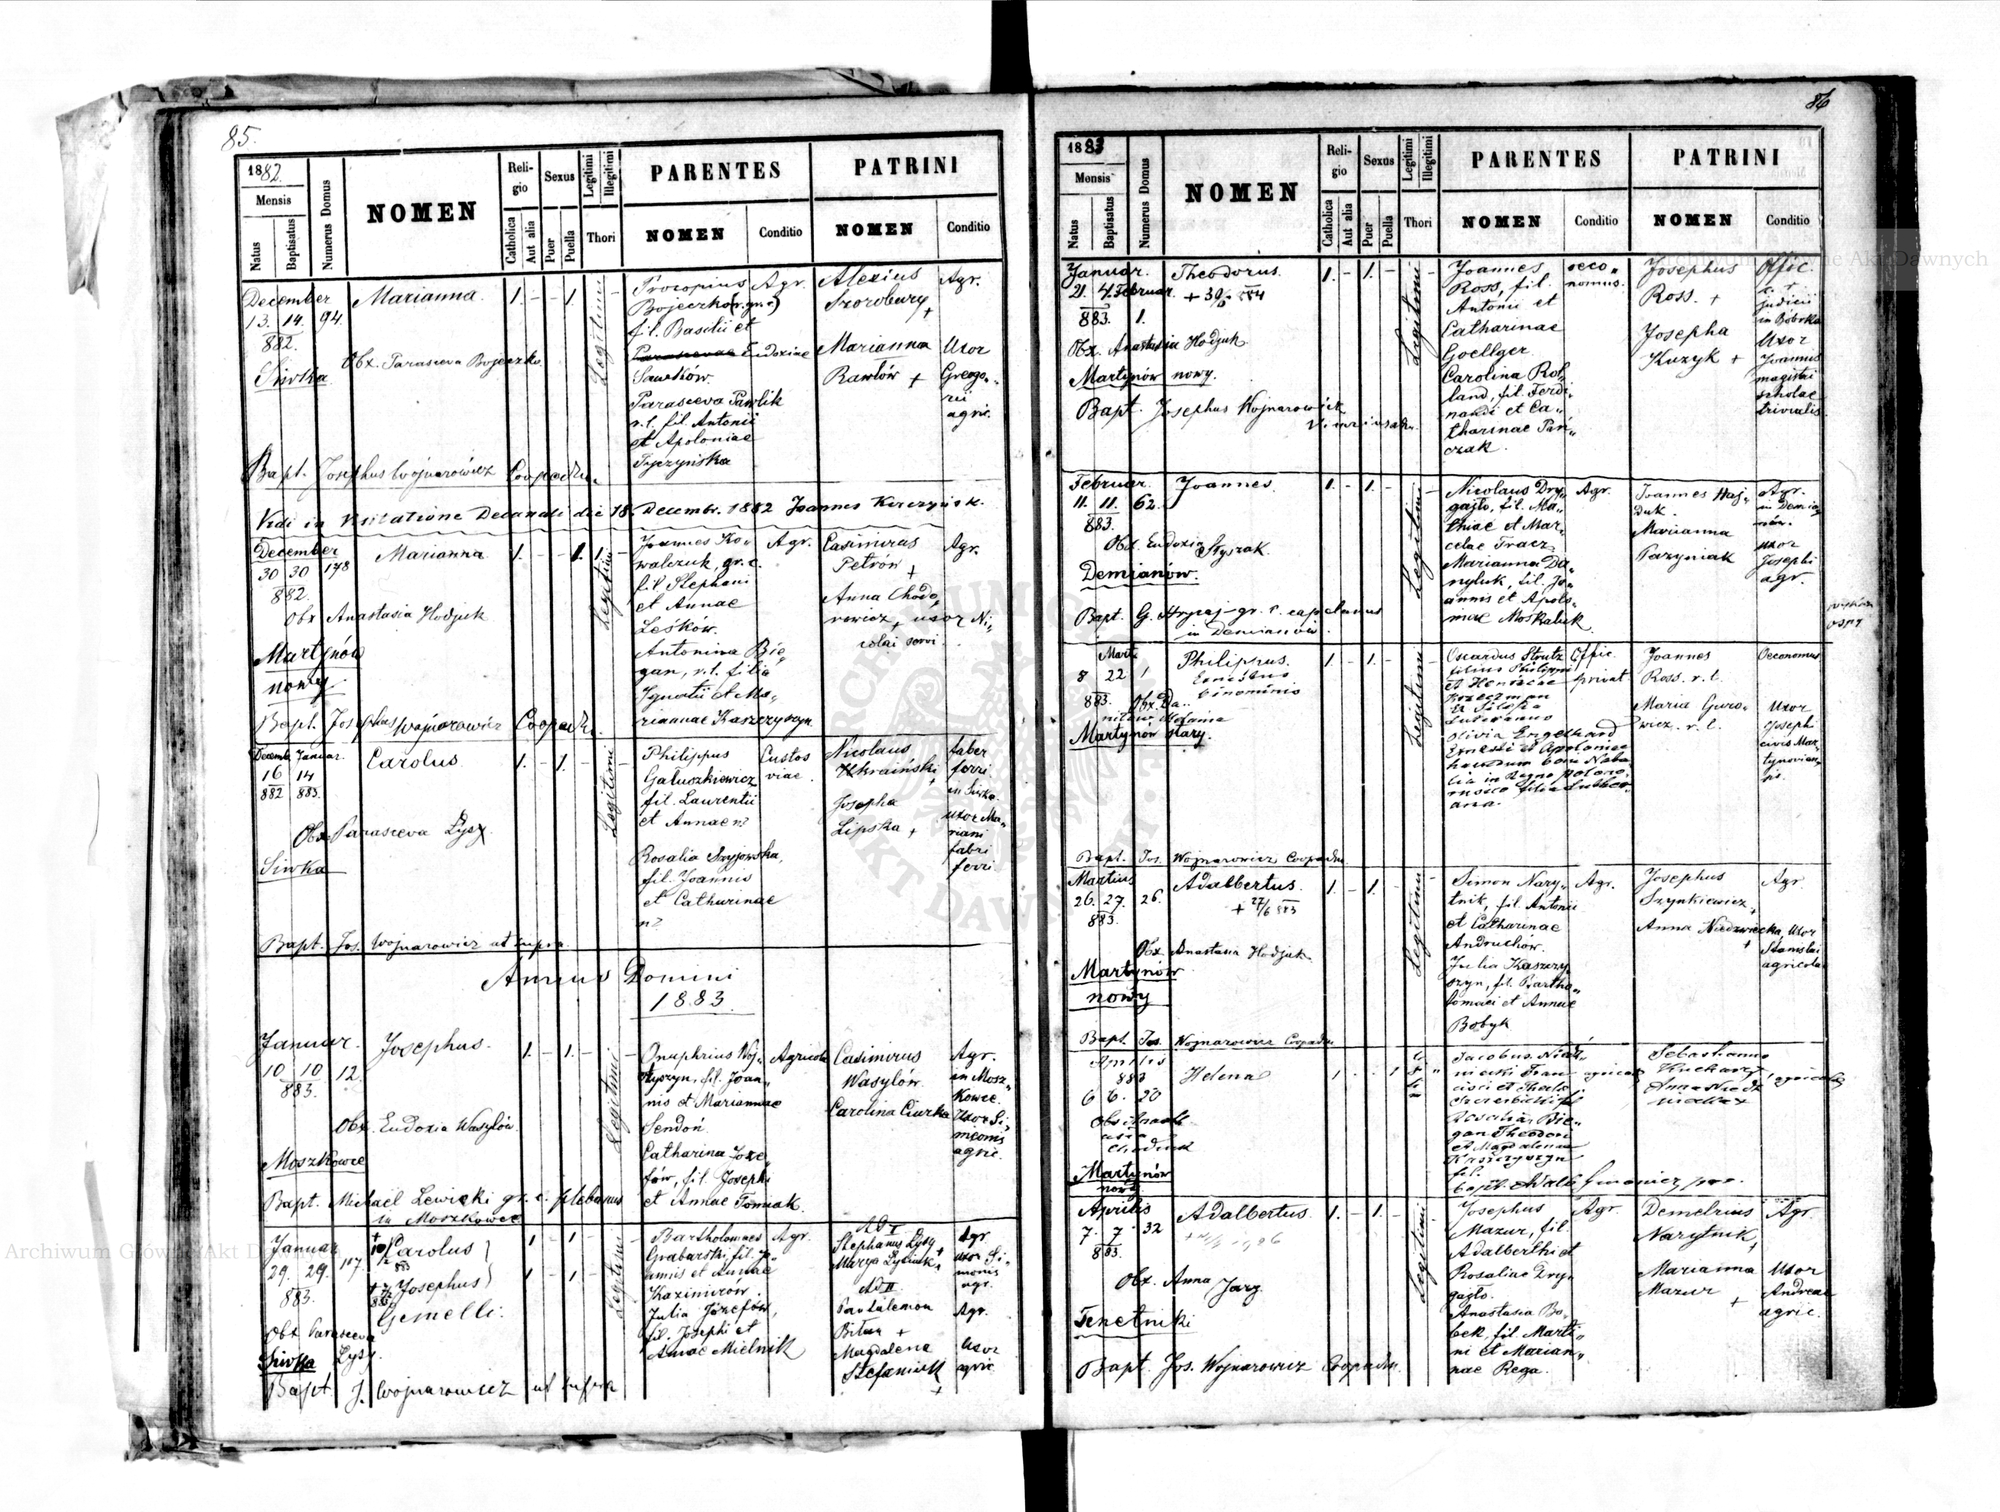 85.
1882.
Mensis
Natus
Baptisatus
Numerus Domus
NOMEN
Religio
Catholica
Aut alia
Sexus
Puer
Puella
Legitimi
Illegitimi
Thori
PARENTES
NOMEN
Conditio
PATRINI
NOMEN
Conditio
December
13. 14. 94.
882.
Siwka
Marianna.
Obx. Parasceva Bojeczko
1. - - 1.
Legitimi
Procopius
Bojeczko (r. gr.)
fil. Basilii et
Parascevae Eudoxiae
Sawków.
Parasceva Pawlik
r. l. fil. Antonii
et Apoloniae
Tyczyńska
Agr.
Alexius
Szorobury
+
Marianna
Rawlów +
Agr.
Uxor
Gregorii
agric.
Bapt. Josephus Wojnarowicz Cooperator
Vidi in Visitatione Decanali die 18. Decembr. 1882 Joannes
December
30 30 178
882.
Marianna
Obx Anastasia Hodjak
Martynów
nowy
1. - - 1. 1. -
Legitimi
Joannes Kowalczuk, gr. c.
fil. Stephani
et Annae
Leśków.
Antonina Biegan, r. l. filia
Ignatii et Mariannae Kaszczyszyn
Agr.
Casimirus
Petrów
+
Anna Chodorewicz + uxor Nicolai servi
Agr.
Bapt. Josephus Wojnarowicz Cooperator
Decemb. Januar.
16 14
882 883.
Carolus
Obx Parasceva Łysy
Siwka
1. - 1. -
Legitimi
Philippus
Gałuszkiewicz
fil. Laurentii
et Annae n?
Rosalia Szyjowska,
fil. Joannis
et Catharinae
n?
Custos
viae.
Nicolaus
Ukraiński +
Josepha
Lipska +
faber
ferri
in Siwka.
uxor Mariani
fabri
ferri.
Bapt. Jos. Wojnarowicz ut supra
Annus Domini
1883.
Januar.
10 10 12.
883.
Josephus.
Obx. Eudoxia Wasylów.
Moszkowce
1. - 1. - -
Legitimi
Onuphrius Wojtyszyn, fil. Joannis et Mariannae
Sendoń.
Catharina Józefów, fil. Josephi
et Annae Tomiak.
Agricola
Casimirus
Wasylów.
Carolina Ciurka
Agr.
in Moszkowce.
Uxor Simeonis
agric.
Bapt. Michaël Lewicki gr. c. plebanus
in Moszkowce
Januar
29. 29. 117.
883.
Carolus
Josephus
Gemelli.
Obx Parasceva
Łysy.
Siwka
1 - 1. -
1. - 1. -
Legitimi
Bartholomaeus
Grabarski, fil. Joannis et Annae
Kazimirów.
Julia Józefów,
fil. Josephi et
Annae Mielnik
Agr.
Ad I
Stephanus Łysy +
Marya
Ad II.
Pantalemon
Bitun +
Magdalena
Stefaniuk
+
Agr.
uxor Simonis
agr.
Agr.
Uxor
agric
Bapt. J. Wojnarowicz ut supra
86
1883
Mensis
Natus
Baptisatus
Numerus Domus
NOMEN
Religio
Catholica
Aut alia
Sexus
Puer
Puella
Legitimi
Illegitimi
Thori
PARENTES
NOMEN
Conditio
PATRINI
NOMEN
Conditio
Januar.
21. 4. Februar.
883. 1.
Theodorus.
Obx. Anastasia Hodjak
Martynów nowy.
1. - 1. -
Legitimi
Joannes
Ross, fil.
Antonii et
Catharinae
Goellger.
Carolina Rolland, fil. Ferdinandi et Catharinae Pańczak.
oeconomus.
Josephus
Ross. +
Josepha
Kuzyk +
Offic.
judicii
in Bóbrka
Uxor
Joannis
magistri
scholae
trivialis.
Bapt. Josephus Wojnarowicz
Februar.
11. 11. 62.
883.
Joannes.
Obx. Eudoxia Styszak.
Demianów.
1. - 1. - -
Legitimi
Nicolaus Drygajło, fil. Mathiae et Marcelae Tracz
Marianna Danyluk, fil. Joannis et Apoloniae Moskaluk.
Agr.
Joannes Hajduk.
Marianna
Pazyniak
Agr.
in Demianów.
uxor
Josephi
agr.
Bapt. G. Hrycaj gr. c. capelanus
in Demianów.
Mart.
8 22 1
883.
Philippus.
Ernestus
binominis
Martynów stary.
1. - 1. -
Legitimi
Oscardus Strutz
filius Philippi
et Henricae
Krzeczman
Luterano
Olivia Engelhard
Ernesti et Apoloniae
Offic.
privat
Joannes
Ross. r. l.
Maria Gurowicz. r. l.
Oeconomus
Uxor
Josephi
civis Martynoviensis.
Bapt. Jos. Wojnarowicz Cooperator
Martius
26. 27. 26.
883.
Adalbertus.
+ 27/6 883
Obx. Anastasia Hodjak
Martynów
nowy
1. - 1. - -
Legitimi
Simon Narytnik, fil. Antonii
et Catharinae
Andruchów.
Julia Kaszczyszyn, fil. Bartholomaei et Annae
Bobyk
Agr.
Josephus
Szynkiewicz +
Anna Niedzwiecka, Uxor
+
Agr
Stanislai
agricolae
Bapt. Jos. Wojnarowicz Cooperator
Aprilis
883
6 6. 20
Helena
Martynów
nowy
Jacobus
Biegan Theodori
et Magdalenae
Kaszczyszyn
agricola
Sebastianus
Kucharz
agricolae
Aprilis
7. 7. 32
883.
Adalbertus.
Obx. Anna
Jarg.
Tenetniki
1. - 1. -
Legitimi
Josephus
Mazur, fil.
Adalberthi et
Rosaliae Drygajło.
Anastasia Bobek, fil. Martini et Mariannae Rega.
Agr.
Demetrius
Narytnik +
Marianna
Mazur +
Agr.
Uxor
Andreae
agric.
Bapt. Jos. Wojnarowicz Cooperator.
Archiwum Główne Akt Dawnych
Archiwum Główne Akt Dawnych
ARCHIWUM GŁÓWNE AKT DAWNYCH